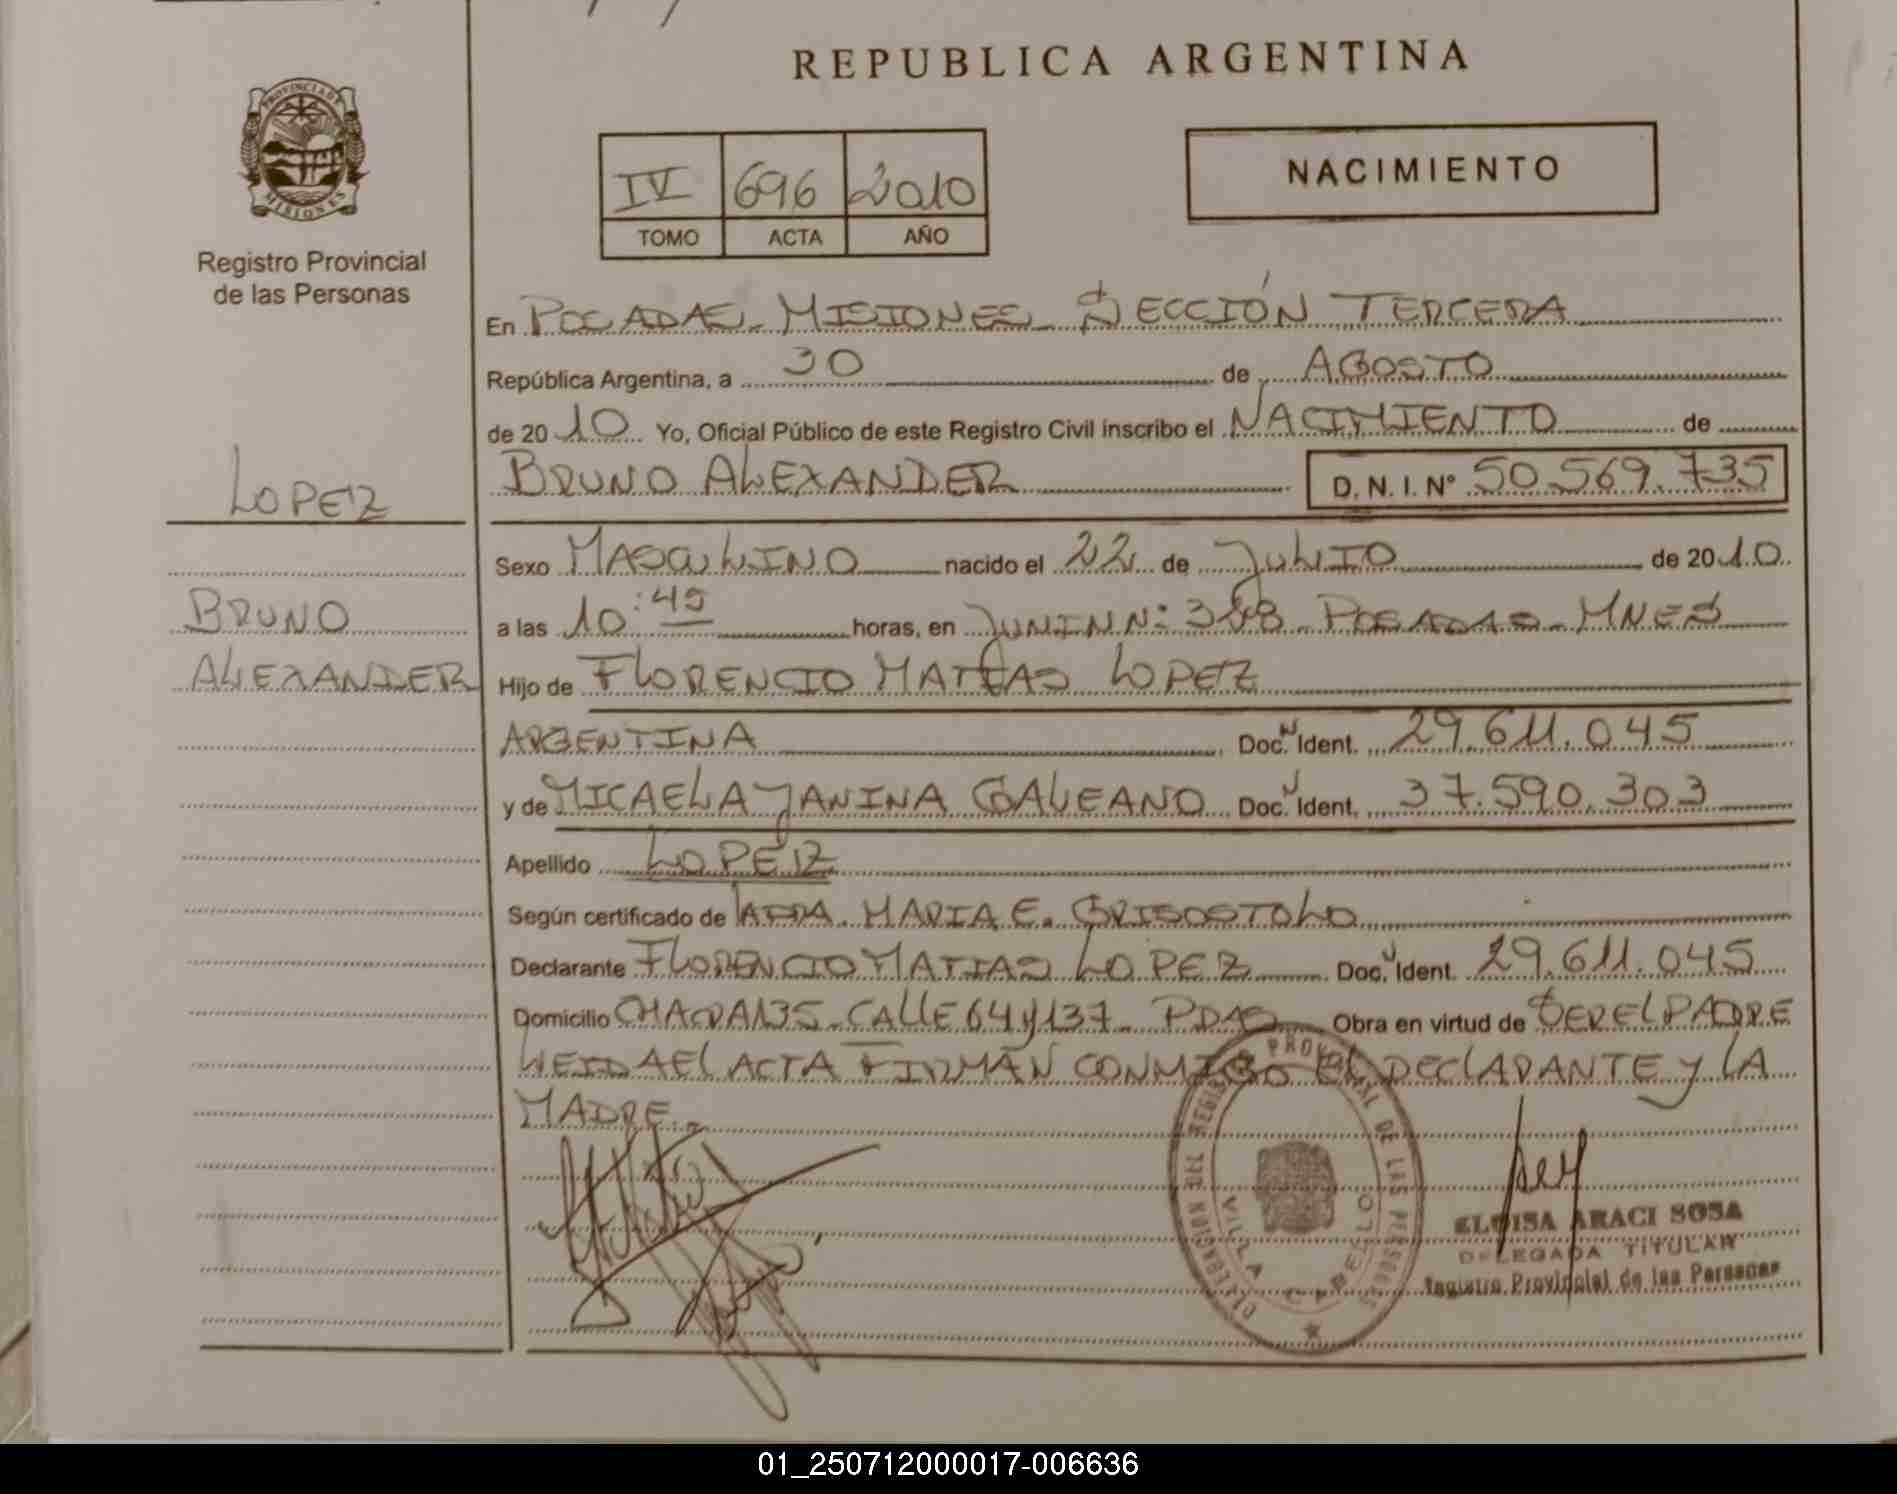 REPUBLICA ARGENTINA
PROVINCIA DE MISIONES
Registro Provincial
de las Personas
IV 696 2010
TOMO ACTA AÑO
NACIMIENTO
En POSADAS - MISIONES - SECCIÓN TERCERA
República Argentina, a 30 de AGOSTO
de 2010 Yo, Oficial Público de este Registro Civil inscribo el NACIMIENTO de
LOPEZ
BRUNO ALEXANDER D.N.I. N° 50.569.735
Sexo MASCULINO nacido el 22 de JULIO de 2010
BRUNO
ALEXANDER
a las 10:45 horas, en JUNIN N: POSADAS - MNES
Hijo de FLORENCIO MATÍAS LOPEZ
ARGENTINA Doc. N Ident. 29.611.045
y de MICAELA YANINA GALEANO Doc. Ident. 37.590.303
Apellido LOPEZ
Según certificado de MARIA E. GRISOSTOLO
Declarante FLORENCIO MATIAS LOPEZ Doc. Ident. 29.611.045
Domicilio CHACRA 135 - CALLE 64 y 137 - PDAS Obra en virtud de SER EL PADRE
LEIDA EL ACTA FIRMAN CONMIGO EL DECLARANTE Y LA
MADRE.-
DELEGACION DEL REGISTRO PROVINCIAL DE LAS PERSONAS
VILLA CABELLO
ELOISA ARACI SOSA
DELEGADA TITULAR
Registro Provincial de las Personas
01_250712000017-006636